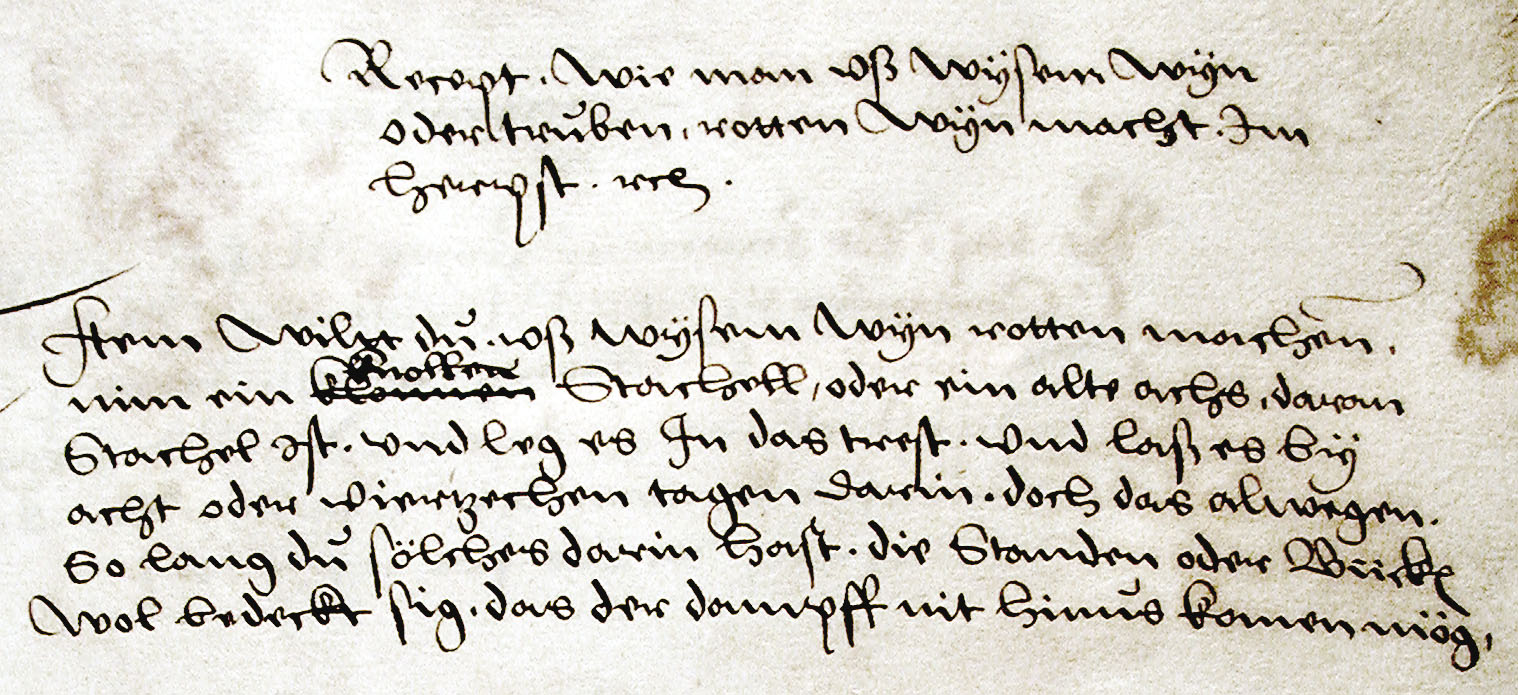 Recept . wie man vß wÿsem wÿn
oder trůben, rotten wÿn macht . Im
hererpst . rch .
Item wilpt dů . vß wÿsem wÿn rotten machen,
nim ein knollen Stachell, oder ein alte achs, daran
Stachel ist . vnd leg es In das trest . vnd laß es bÿ
acht oder viertzechen tagen darin . doch das alwegen .
So lang dů sölches darin hast . die Standen oder Bücke
wol bedeckt sig . das der dampff nit hinůs komen mög,